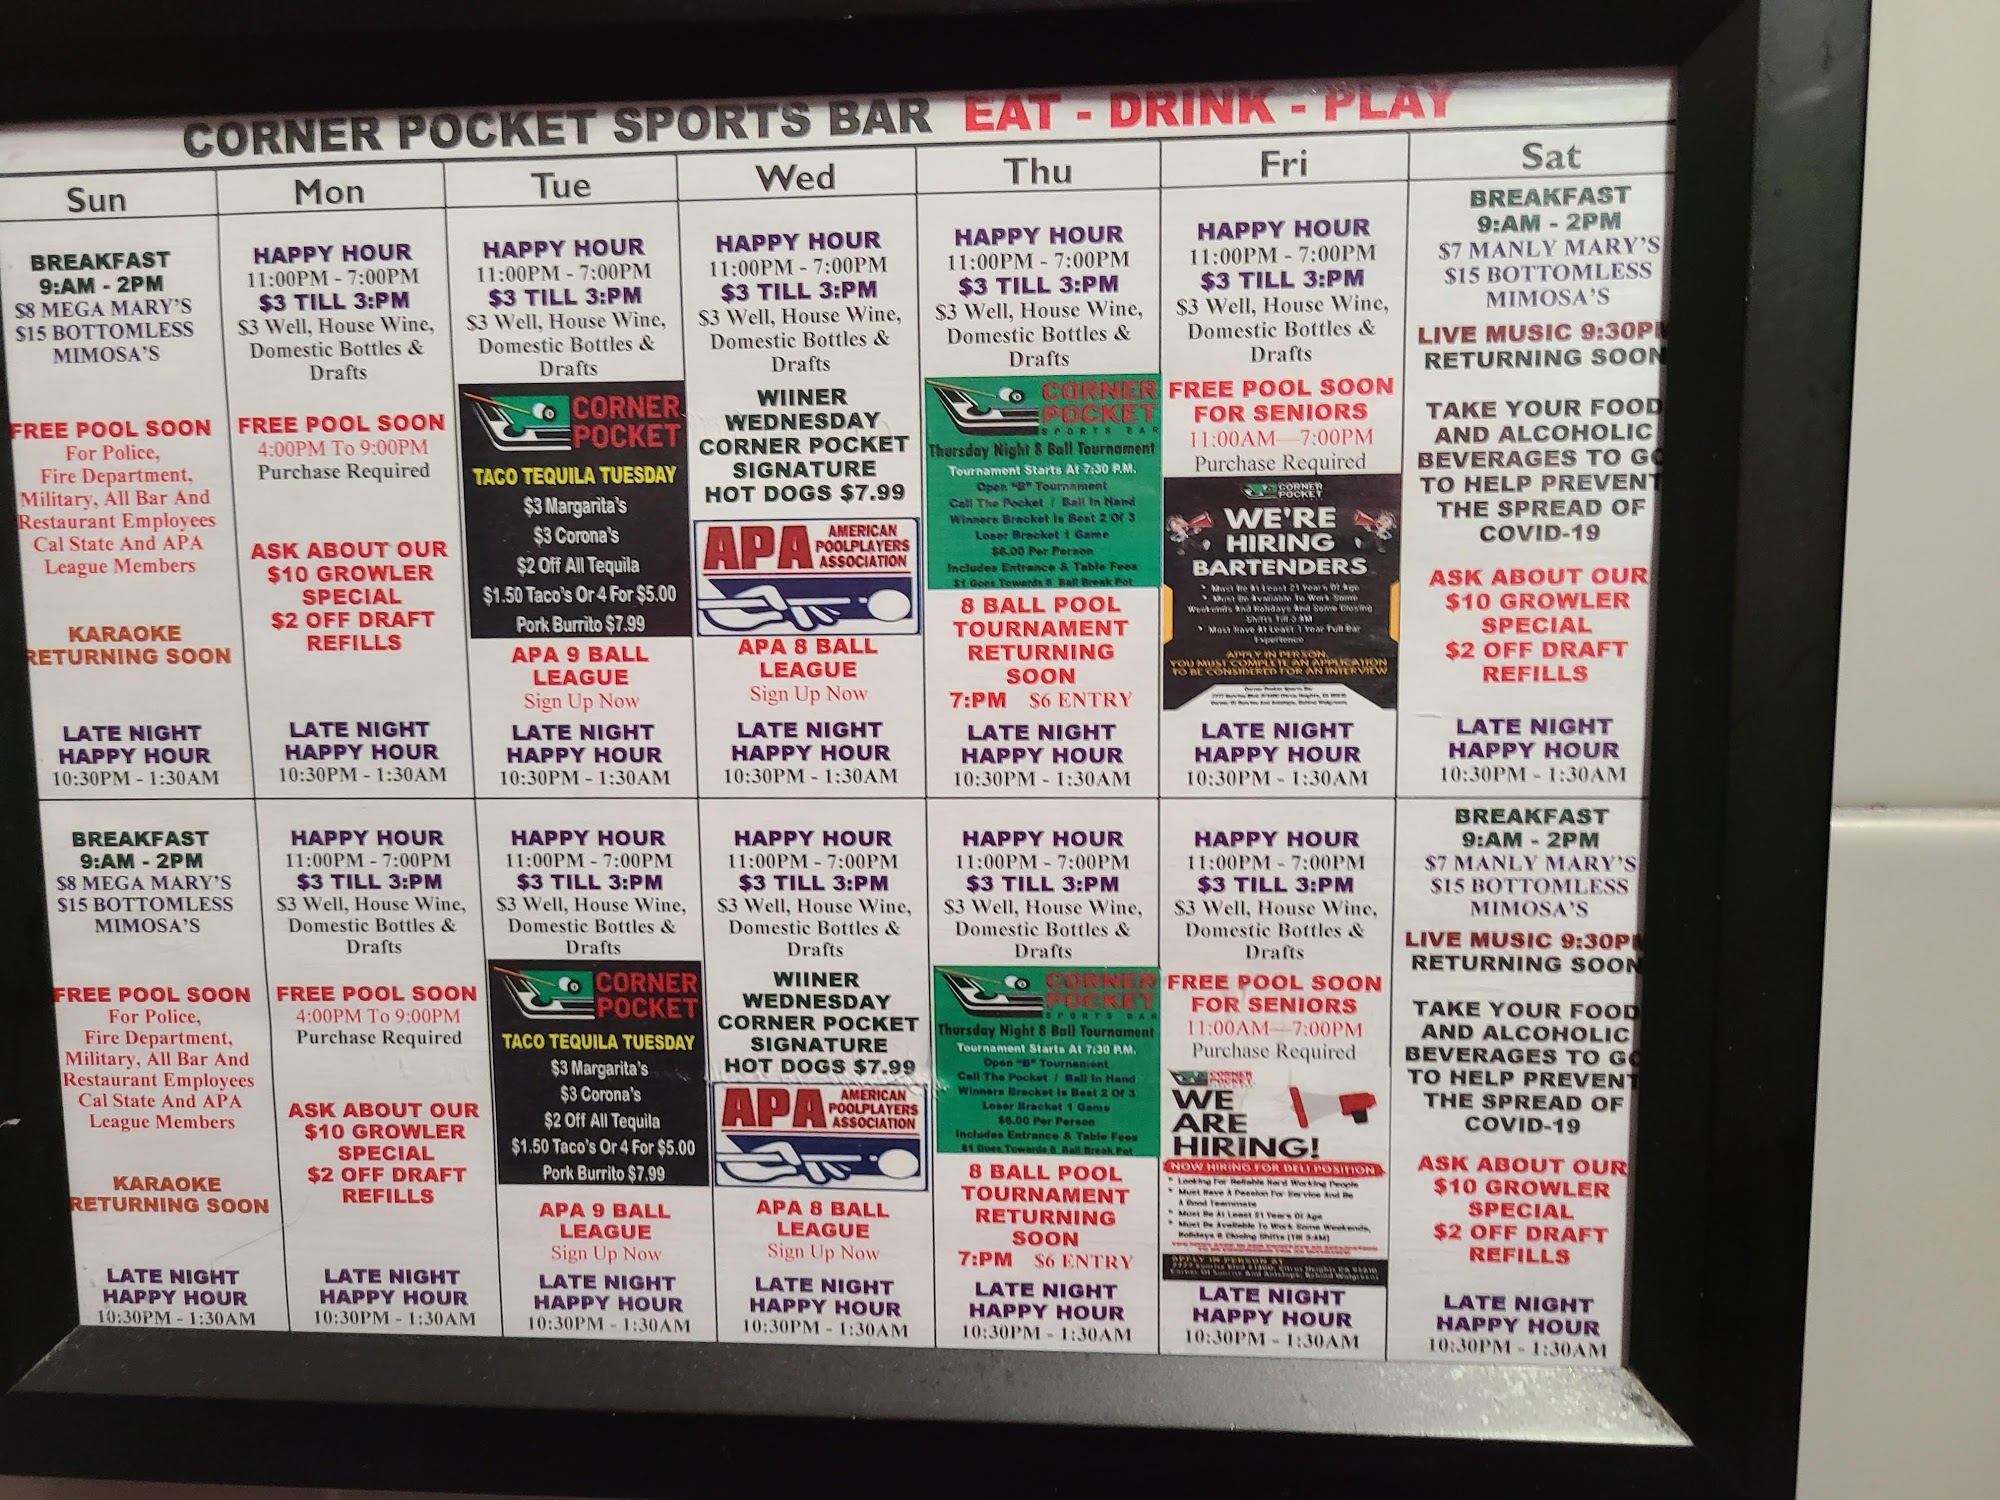 CORNER POCKET SPORTS BAR EAT - DRINK - PLAY
Sun
BREAKFAST
9:AM - 2PM
$8 MEGA MARY'S
$15 BOTTOMLESS
MIMOSA'S
FREE POOL SOON
For Police,
Fire Department,
Military, All Bar And
Restaurant Employees
Cal State And APA
League Members
KARAOKE
RETURNING SOON
LATE NIGHT
HAPPY HOUR
10:30PM - 1:30AM
Mon
HAPPY HOUR
11:00PM - 7:00PM
$3 TILL 3:PM
$3 Well, House Wine,
Domestic Bottles &
Drafts
FREE POOL SOON
4:00PM To 9:00PM
Purchase Required
ASK ABOUT OUR
$10 GROWLER
SPECIAL
$2 OFF DRAFT
REFILLS
LATE NIGHT
HAPPY HOUR
10:30PM - 1:30AM
Tue
HAPPY HOUR
11:00PM - 7:00PM
$3 TILL 3:PM
$3 Well, House Wine,
Domestic Bottles &
Drafts
CORNER
POCKET
TACO TEQUILA TUESDAY
$3 Margarita's
$3 Corona's
$2 Off All Tequila
$1.50 Taco's Or 4 For $5.00
Pork Burrito $7.99
APA 9 BALL
LEAGUE
Sign Up Now
LATE NIGHT
HAPPY HOUR
10:30PM - 1:30AM
Wed
HAPPY HOUR
11:00PM - 7:00PM
$3 TILL 3:PM
$3 Well, House Wine,
Domestic Bottles &
Drafts
WIINER
WEDNESDAY
CORNER POCKET
SIGNATURE
HOT DOGS $7.99
APA AMERICAN
POOLPLAYERS
ASSOCIATION
APA 8 BALL
LEAGUE
Sign Up Now
LATE NIGHT
HAPPY HOUR
10:30PM - 1:30AM
Thu
HAPPY HOUR
11:00PM - 7:00PM
$3 TILL 3:PM
$3 Well, House Wine,
Domestic Bottles &
Drafts
CORNER
POCKET
SPORTS BAR
Thursday Night 8 Ball Tournament
Tournament Starts At 7:30 P.M.
Open "B" Tournament
Call The Pocket / Ball In Hand
Winners Bracket Is Best 2 Of 3
Loser Bracket 1 Game
$6.00 Per Person
Includes Entrance & Table Fees
$1 Goes Towards 8 Ball Break Pot
8 BALL POOL
TOURNAMENT
RETURNING
SOON
7:PM $6 ENTRY
LATE NIGHT
HAPPY HOUR
10:30PM - 1:30AM
Fri
HAPPY HOUR
11:00PM - 7:00PM
$3 TILL 3:PM
$3 Well, House Wine,
Domestic Bottles &
Drafts
FREE POOL SOON
FOR SENIORS
11:00AM—7:00PM
Purchase Required
CORNER
POCKET
WE'RE
HIRING
BARTENDERS
* Must Be At Least 21 Years Of Age
* Must Be Available To Work Some
Weekends And Holidays And Some Closing
Shifts Till 3 AM
* Must Have At Least 1 Year Full Bar
Experience
APPLY IN PERSON.
YOU MUST COMPLETE AN APPLICATION
TO BE CONSIDERED FOR AN INTERVIEW
LATE NIGHT
HAPPY HOUR
10:30PM - 1:30AM
Sat
BREAKFAST
9:AM - 2PM
$7 MANLY MARY'S
$15 BOTTOMLESS
MIMOSA'S
LIVE MUSIC 9:30PM
RETURNING SOON
TAKE YOUR FOOD
AND ALCOHOLIC
BEVERAGES TO GO
TO HELP PREVENT
THE SPREAD OF
COVID-19
ASK ABOUT OUR
$10 GROWLER
SPECIAL
$2 OFF DRAFT
REFILLS
LATE NIGHT
HAPPY HOUR
10:30PM - 1:30AM
BREAKFAST
9:AM - 2PM
$8 MEGA MARY'S
$15 BOTTOMLESS
MIMOSA'S
FREE POOL SOON
For Police,
Fire Department,
Military, All Bar And
Restaurant Employees
Cal State And APA
League Members
KARAOKE
RETURNING SOON
LATE NIGHT
HAPPY HOUR
10:30PM - 1:30AM
HAPPY HOUR
11:00PM - 7:00PM
$3 TILL 3:PM
$3 Well, House Wine,
Domestic Bottles &
Drafts
FREE POOL SOON
4:00PM To 9:00PM
Purchase Required
ASK ABOUT OUR
$10 GROWLER
SPECIAL
$2 OFF DRAFT
REFILLS
LATE NIGHT
HAPPY HOUR
10:30PM - 1:30AM
HAPPY HOUR
11:00PM - 7:00PM
$3 TILL 3:PM
$3 Well, House Wine,
Domestic Bottles &
Drafts
CORNER
POCKET
TACO TEQUILA TUESDAY
$3 Margarita's
$3 Corona's
$2 Off All Tequila
$1.50 Taco's Or 4 For $5.00
Pork Burrito $7.99
APA 9 BALL
LEAGUE
Sign Up Now
LATE NIGHT
HAPPY HOUR
10:30PM - 1:30AM
HAPPY HOUR
11:00PM - 7:00PM
$3 TILL 3:PM
$3 Well, House Wine,
Domestic Bottles &
Drafts
WIINER
WEDNESDAY
CORNER POCKET
SIGNATURE
HOT DOGS $7.99
APA AMERICAN
POOLPLAYERS
ASSOCIATION
APA 8 BALL
LEAGUE
Sign Up Now
LATE NIGHT
HAPPY HOUR
10:30PM - 1:30AM
HAPPY HOUR
11:00PM - 7:00PM
$3 TILL 3:PM
$3 Well, House Wine,
Domestic Bottles &
Drafts
CORNER
POCKET
SPORTS BAR
Thursday Night 8 Ball Tournament
Tournament Starts At 7:30 P.M.
Open "B" Tournament
Call The Pocket / Ball In Hand
Winners Bracket Is Best 2 Of 3
Loser Bracket 1 Game
$6.00 Per Person
Includes Entrance & Table Fees
$1 Goes Towards 8 Ball Break Pot
8 BALL POOL
TOURNAMENT
RETURNING
SOON
7:PM $6 ENTRY
LATE NIGHT
HAPPY HOUR
10:30PM - 1:30AM
HAPPY HOUR
11:00PM - 7:00PM
$3 TILL 3:PM
$3 Well, House Wine,
Domestic Bottles &
Drafts
FREE POOL SOON
FOR SENIORS
11:00AM—7:00PM
Purchase Required
CORNER
POCKET
WE
ARE
HIRING!
NOW HIRING FOR DELI POSITION
* Looking For Reliable Hard Working People
* Must Have A Passion For Service And Be
A Good Teammate
* Must Be At Least 21 Years Of Age
* Must Be Available To Work Some Weekends,
Holidays & Closing Shifts (Till 3:AM)
APPLY IN PERSON AT
LATE NIGHT
HAPPY HOUR
10:30PM - 1:30AM
BREAKFAST
9:AM - 2PM
$7 MANLY MARY'S
$15 BOTTOMLESS
MIMOSA'S
LIVE MUSIC 9:30PM
RETURNING SOON
TAKE YOUR FOOD
AND ALCOHOLIC
BEVERAGES TO GO
TO HELP PREVENT
THE SPREAD OF
COVID-19
ASK ABOUT OUR
$10 GROWLER
SPECIAL
$2 OFF DRAFT
REFILLS
LATE NIGHT
HAPPY HOUR
10:30PM - 1:30AM